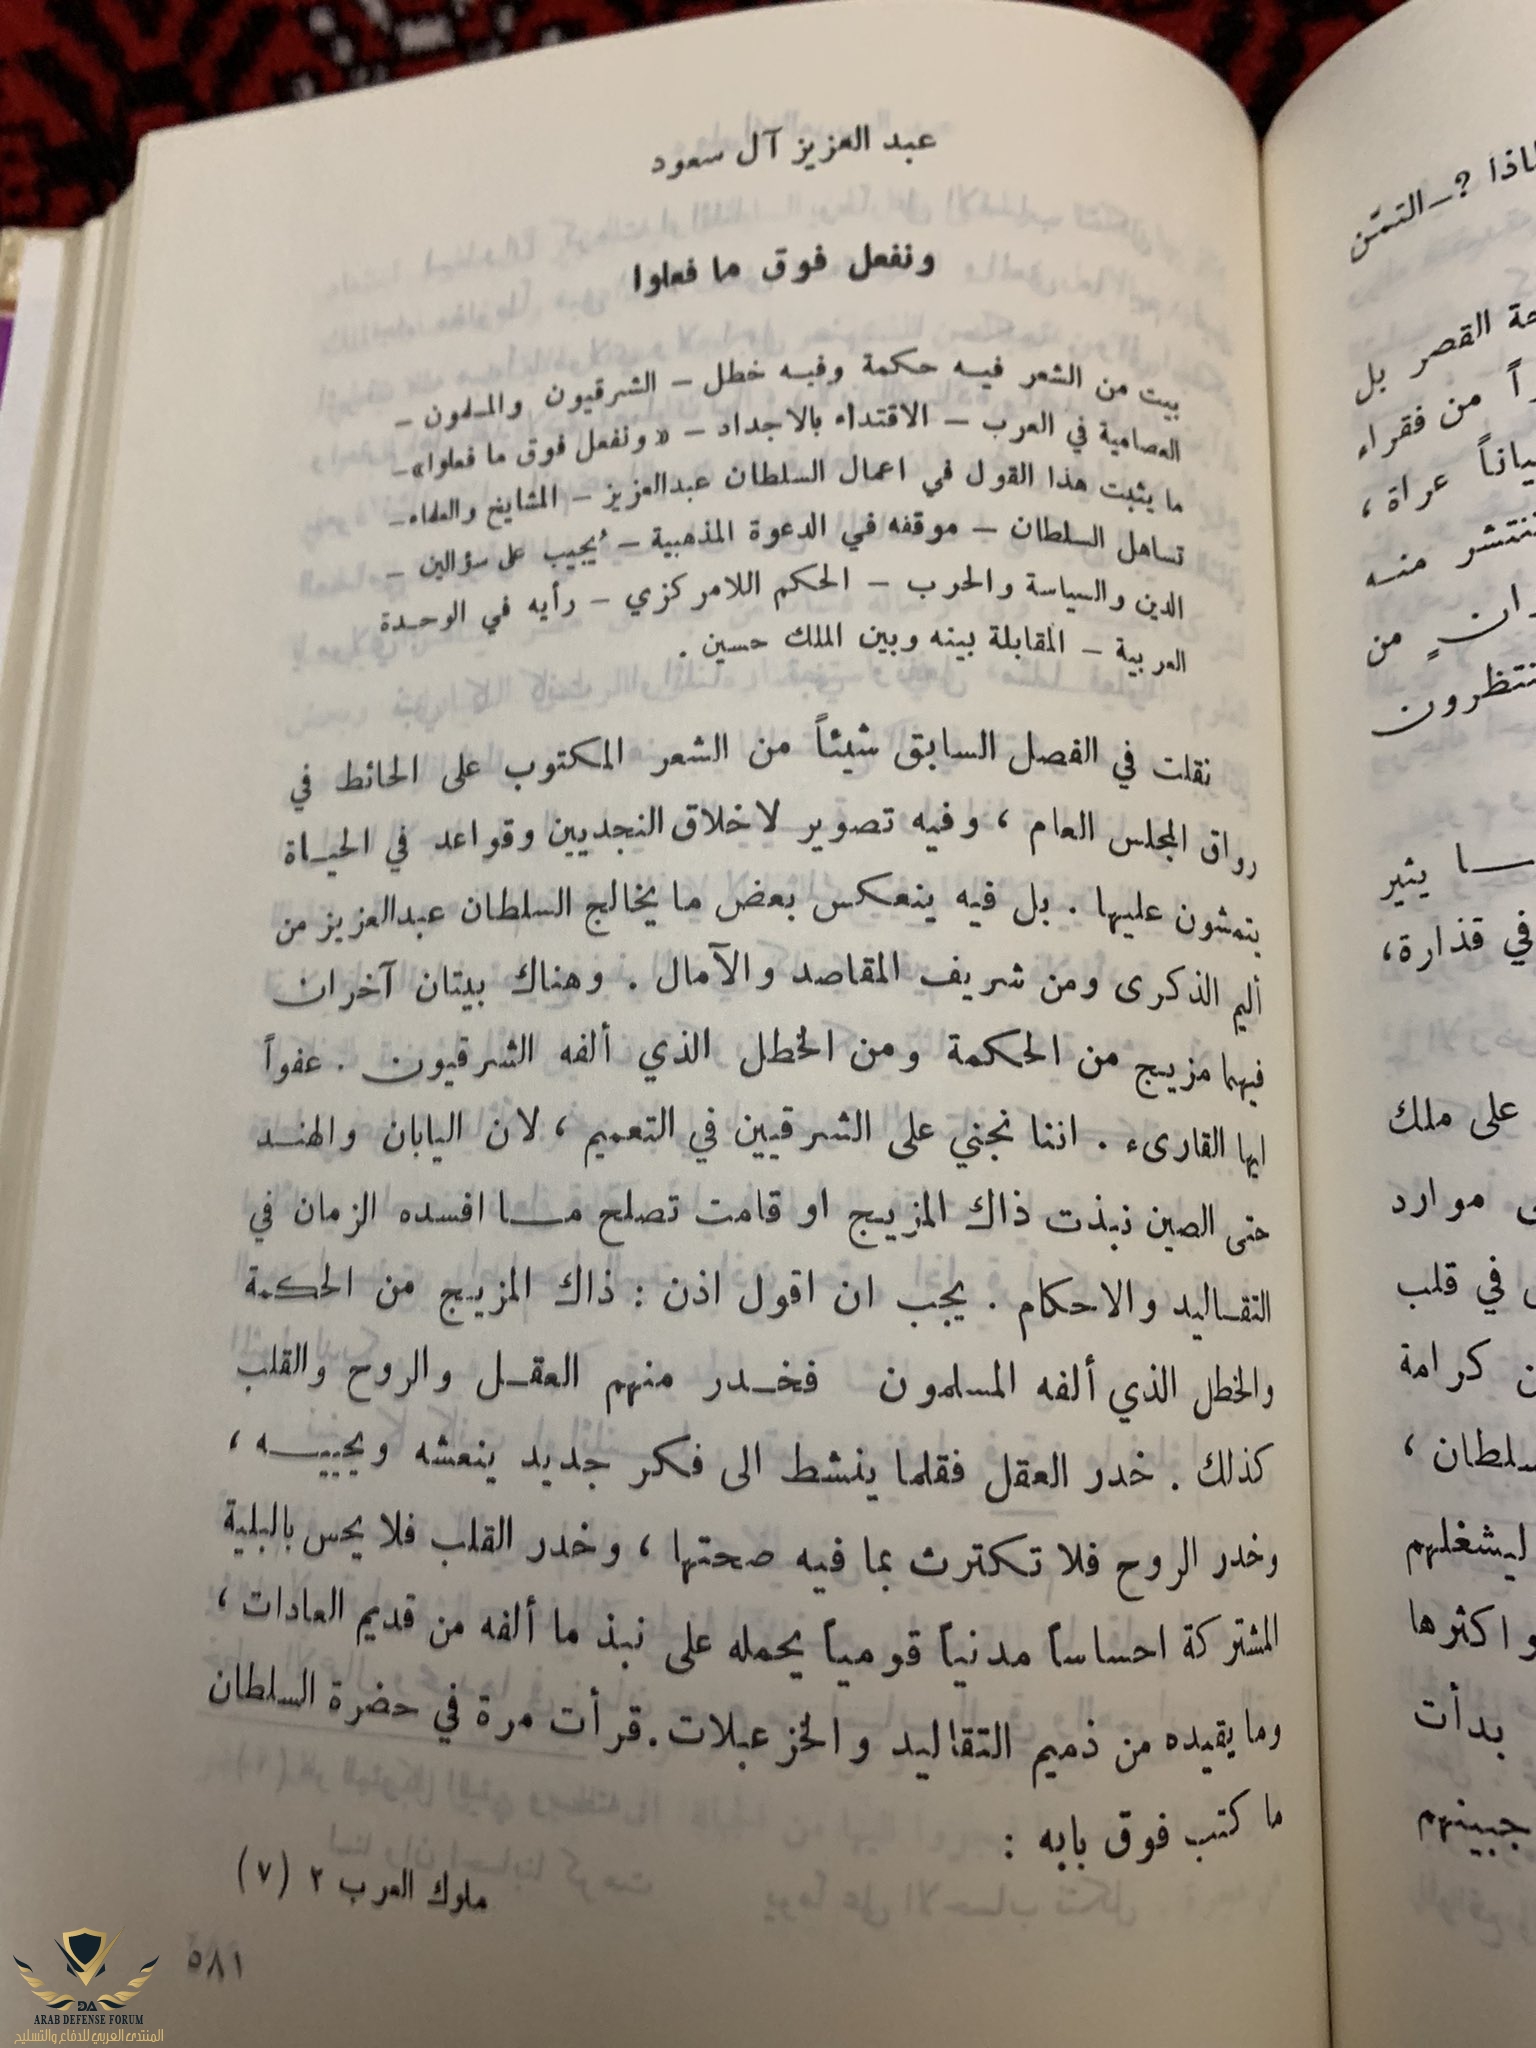 عبد العزيز آل سعود
ونفعل فوق ما فعلوا
بيت من الشعر فيه حكمة وفيه خطل – الشرقيون والمسلمون –
العصامية في العرب – الاقتداء بالاجداد – «ونفعل فوق ما فعلوا» –
ما يثبت هذا القول في اعمال السلطان عبدالعزيز – المشايخ والعلماء –
تساهل السلطان – موقفه في الدعوة المذهبية – يُجيب على سؤالين –
الدين والسياسة والحرب – الحكم اللامركزي – رأيه في الوحدة
العربية – المقابلة بينه وبين الملك حسين .
نقلت في الفصل السابق شيئاً من الشعر المكتوب على الحائط في
رواق المجلس العام ، وفيه تصوير لاخلاق النجديين وقواعد في الحياة
يتمشون عليها . بل فيه ينعكس بعض ما يخالج السلطان عبدالعزيز من
أليم الذكرى ومن شريف المقاصد والآمال . وهناك بيتان آخران
فيهما مزيج من الحكمة ومن الخطل الذي ألفه الشرقيون . عفواً
ايها القارىء . اننا نجني على الشرقيين في التعميم ، لان اليابان والهند
حتى الصين نبذت ذاك المزيج او قامت تصلح ما افسده الزمان في
التقاليد والاحكام . يجب ان اقول اذن : ذاك المزيج من الحكمة
والخطل الذي ألفه المسلمون فخدر منهم العقل والروح والقلب
كذلك . خدر العقل فقلما ينشط الى فكر جديد ينعشه ويحييه ،
وخدر الروح فلا تكترث بما فيه صحتها ، وخدر القلب فلا يحس بالبلية
المشتركة احساساً مدنياً قومياً يحمله على نبذ ما ألفه من قديم العادات ،
وما يقيده من ذميم التقاليد والخزعبلات . قرأت مرة في حضرة السلطان
ما كتب فوق بابه :
ملوك العرب ٢ (٧)
٥٨١
لماذا ؟ – التمدّن
القصر بل
من فقراء
عراة ،
منه
من
يثير
في قذارة ،
على ملك
موارد
في قلب
كرامة
ليشغلهم
واكثرها
بدأت
جبينهم
DA
ARAB DEFENSE FORUM
المنتدى العربي للدفاع والتسليح